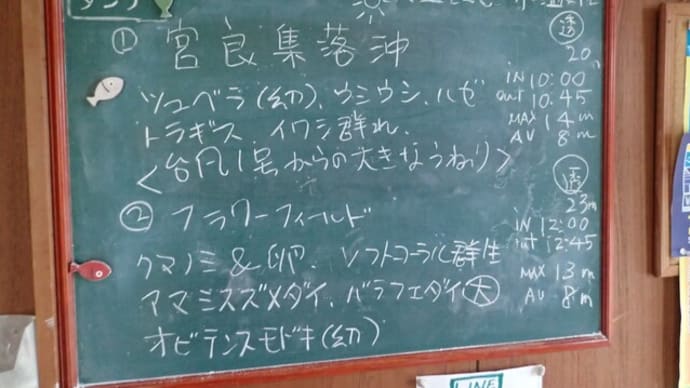 ① 宮良集落沖
透
20m
ツユベラ(幼)、ウミウシ、ハゼ
IN 10:00
out 10:45
トラギス イワシ群れ、
MAX 14m
AV 8m
<台風1号からの大きなうねり>
透
23m
② フラワーフィールド
IN 12:00
out 12:45
クマノミ&卵、ソフトコーラル群生
MAX 13m
アマミスズメダイ、バラフエダイ(大)
AV 8m
オビテンスモドキ(幼)
LINE